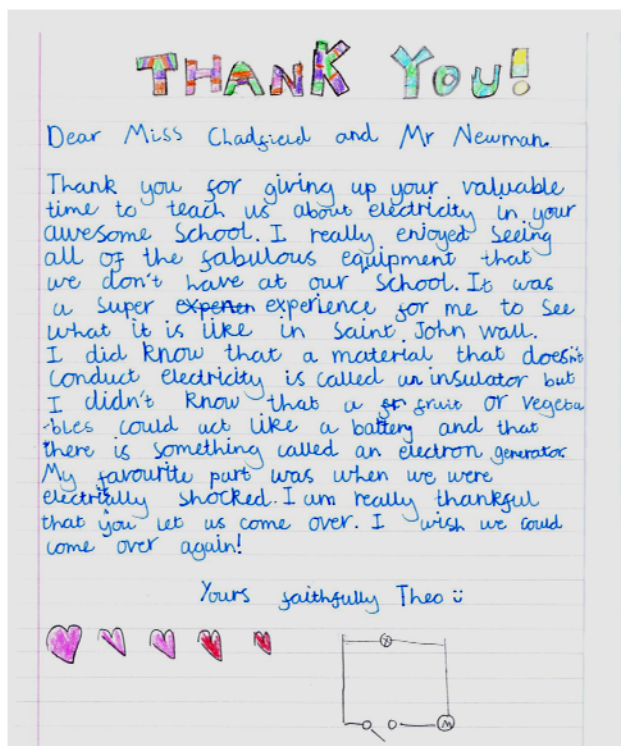 THANK YOU!
Dear Miss Chadfield and Mr Newman.
Thank you for giving up your valuable
time to teach us about electricity in your
awesome School. I really enjoyed seeing
all of the fabulous equipment that
we don't have at our School. It was
a super expenen experience for me to see
what it is like in Saint John Wall.
I did know that a material that doesn't
conduct electricity is called an insulator but
I didn't know that a fr fruit or vegeta
-bles could act like a battery and that
there is something called an electron generator.
My favourite part was when we were
electrically shocked. I am really thankful
that you let us come over. I wish we could
come over again!
Yours faithfully Theo
M